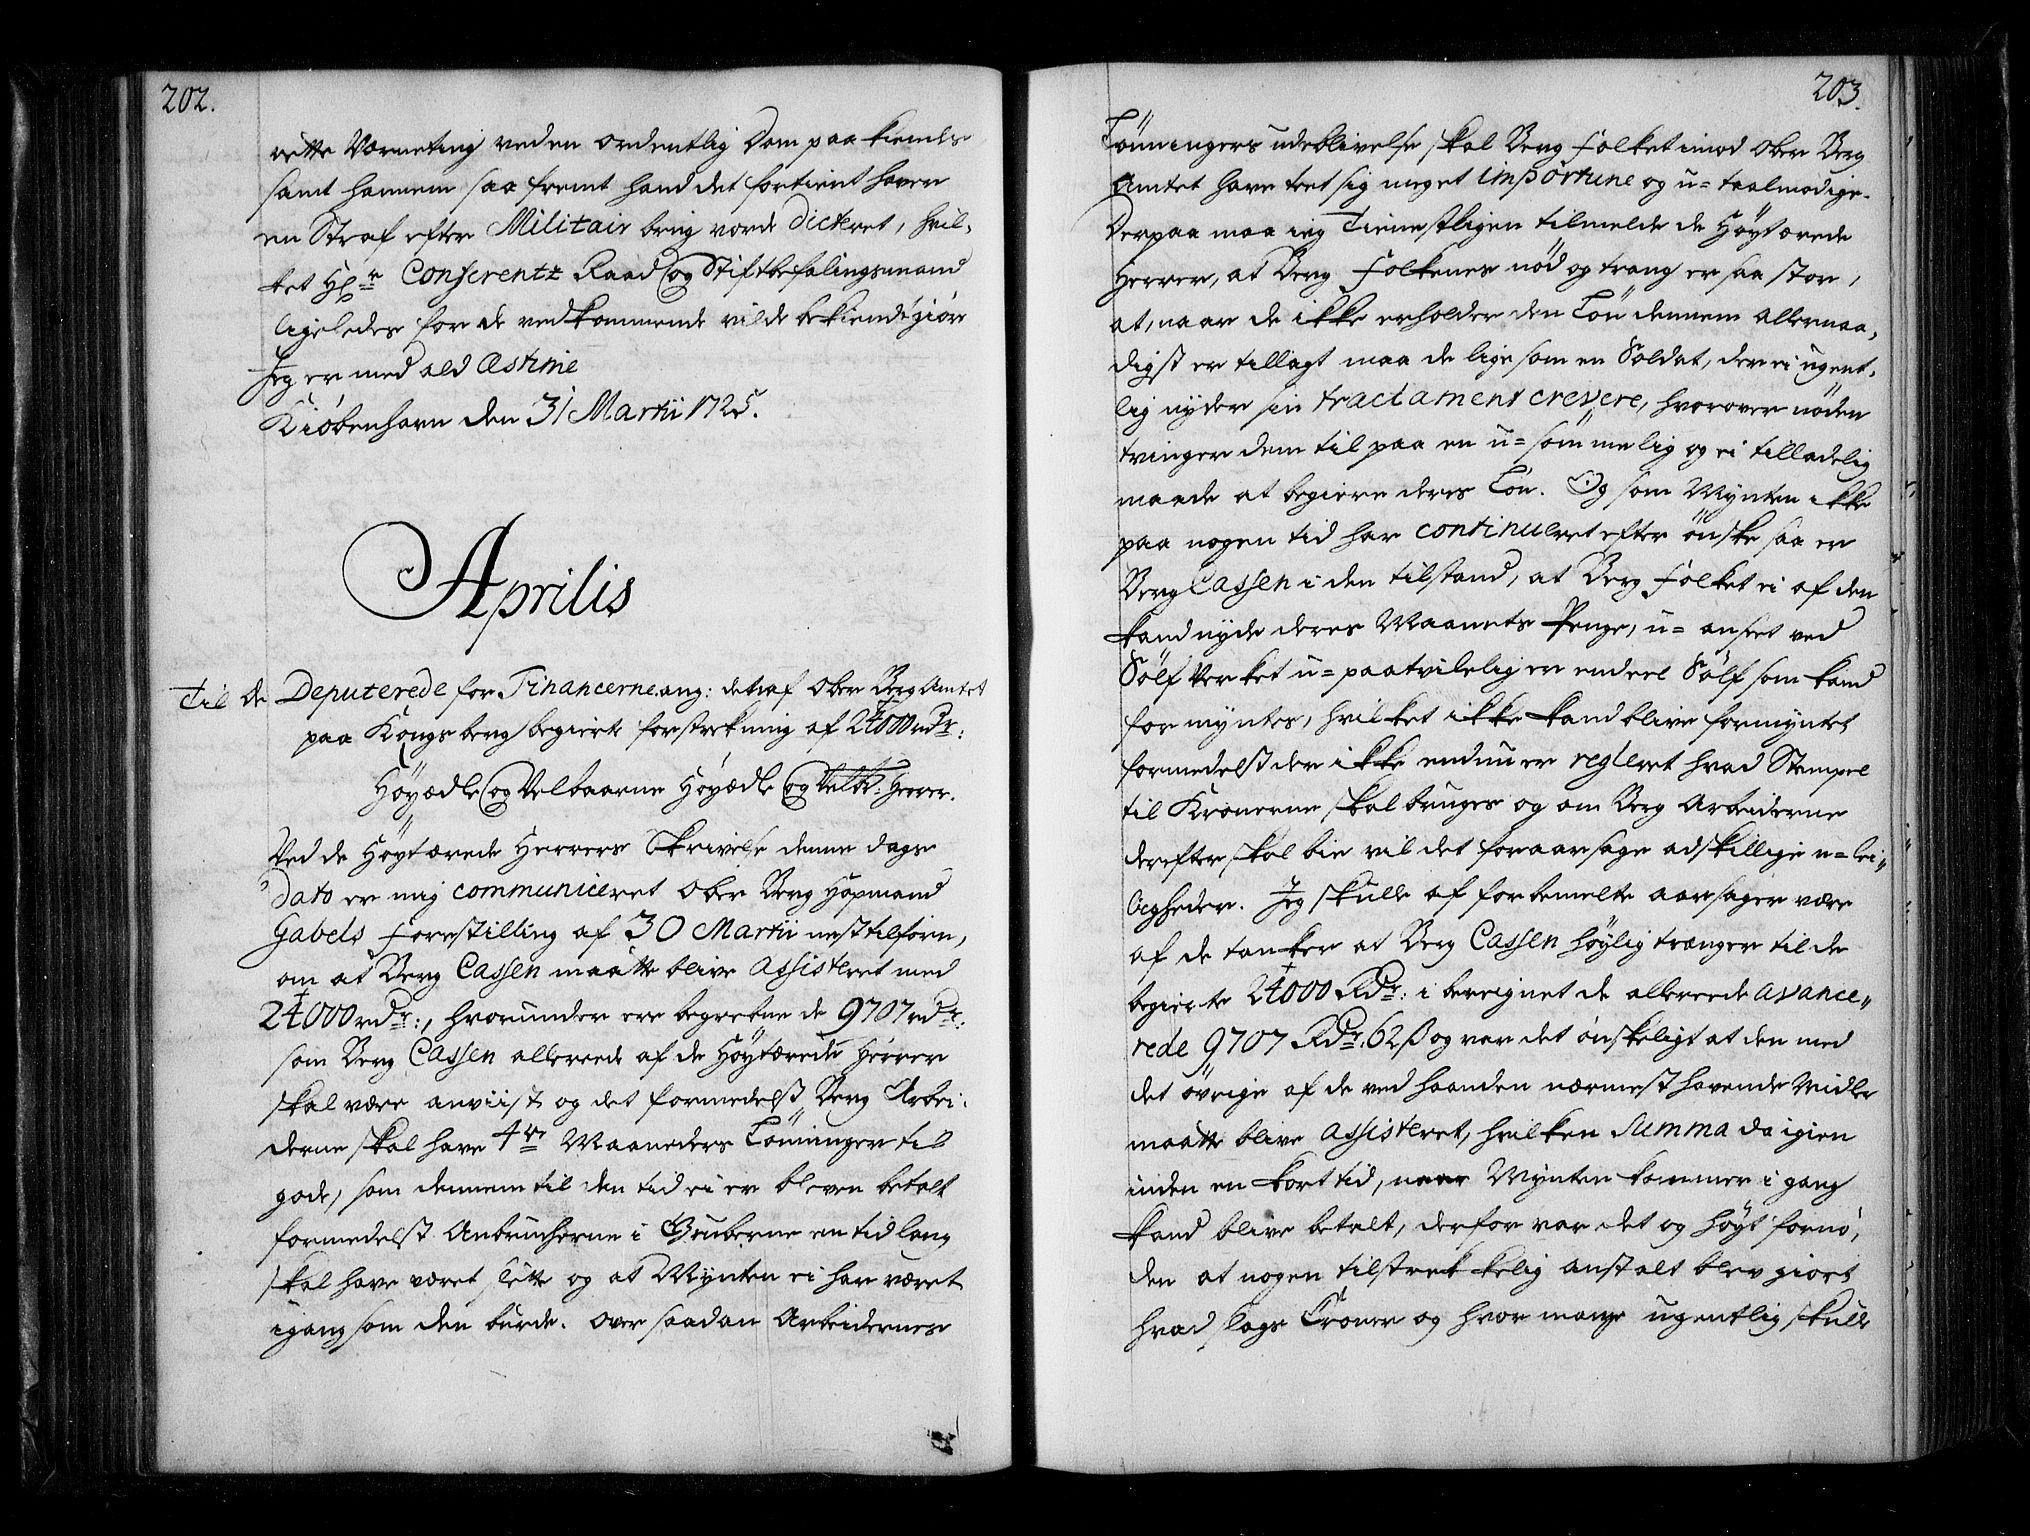 202.
rette Værneting ved en ordentlig Dom paa kiende
samt hannem saa fremt hand det fortient haver
en Straf efter Militair brug vorde dicteret, hvil-
ket Hr Conferentz Raad og Stiftbefalingsmand
ligeledes for de vedkommende vilde bekiendtgiøre
Jeg er med ald Æstime
Kiøbenhavn den 31 Martii 1725.
Aprilis
Til de Deputerede for Financerne ang: det af Ober Berg Amtet
paa Kongsberg begierte forstrekning af 24000 rdr:
Høyædle og Velbaarne Høyædle og Velbr: Herrer.
Ved de Høytærede Herrers Skrivelse denne dags
dato er mig communiceret Ober Berg Hopmand
Gabels Forestilling af 30 Martii nesttilforn,
om at Berg Cassen maatte blive assisteret med
24000 rdr:, hvorunder ere begrebne de 9707 rdr:
som Berg Cassen allereede af de Høytærede Herrer
skal være anviist og det formedelst Berg Arbei-
derne skal have 4re Maaneders Lønninger til
gode, som dennem til den tid ei er bleven betalt
formedelst Anbrucherne i Gruberne en tid lang
skal have været slette og at Mynten ei har været
igang som den burde. Over saadan Arbeidernes
203.
Lønningers udeblivelse skal Berg Folket imod Ober Berg
Amtet have teet sig meget importune og u-taalmodige.
Derpaa maa ieg Tienestligen tilmelde de Høytærede
Herrer, at Berg Folkenes nød og trang er saa stor,
at, naar de ikke erholder den Løn dennem allernaa-
digst er tillagt maa de lige som en Soldat, der ei ugent-
lig nyder sin tractament crevere, hvorover nøden
tvinger dem til paa en u-sømmelig og ei tilladelig
maade at begiere deres Løn. Og som Mynten ikke
paa nogen tid har continueret efter ønske saa er
Berg Cassen i den tilstand, at Berg Folket ei af den
kand nyde deres Maanets Penge, u-anseet ved
Sølf Verket u-paatvilelig er endeel Sølf som kand
formyntes, hvilket ikke kand blive formyntet
formedelst der ikke endnu er regleret hvad Stempel
til Kronerne skal bruges og om Berg Arbeiderne
derefter skal bie vil det foraarsage adskillige u-lei-
ligheder. Jeg skulle af forbemelte aarsager være
af de tanker at Berg Cassen høylig trænger til de
begierte 24000 Rdr: i beregnet de allereede avance-
rede 9707 Rdr: 62 ß og var det ønskeligt at den med
det øvrige af de ved haanden nærmest havende Midler
maatte blive assisteret, hvilken Summa da igien
inden en kort tid, naar Mynten kommer i gang
kand blive betalt, derfor var det og høyt fornø-
den at nogen tilstrekkelig anstalt blev giort
hvad slags Croner og hvor mange ugentlig skulle